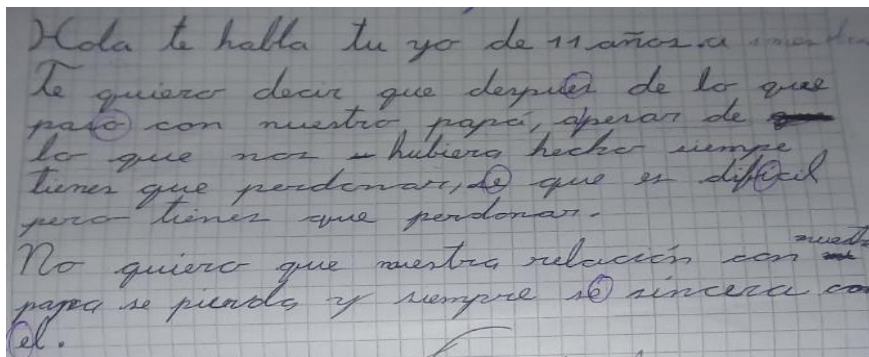 Hola te habla tu yo de 11 años.a
Te quiero decir que despues de lo que
paso con nuestro papá, apesar de
lo que nos hubiera hecho siempe
tienes que perdonar, se que es dificil
pero tienes que perdonar.
No quiero que nuestra relación con
papa se pierda y siempre sé sincera co
el.